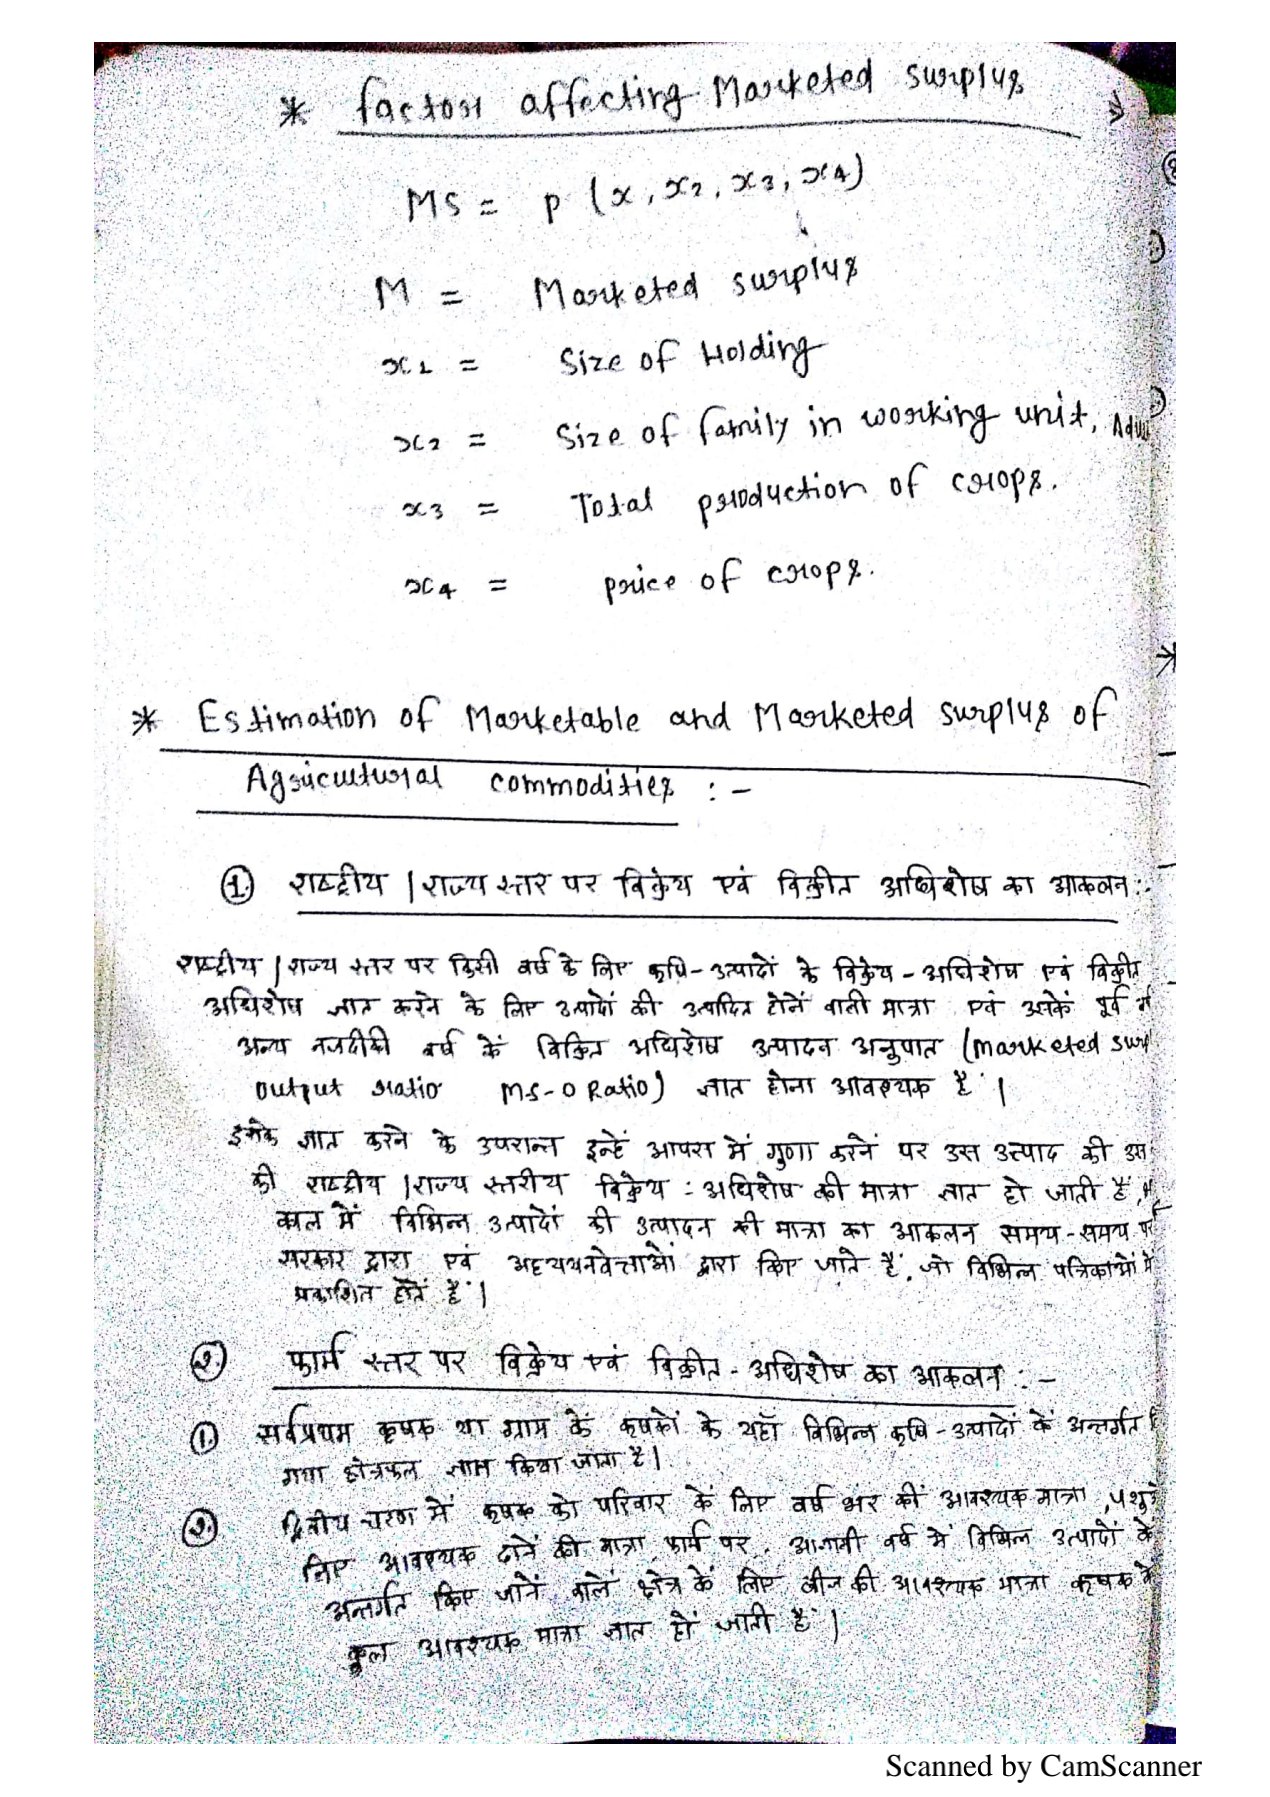 * factors affecting Marketed surplus
MS = p (x, x2, x3, x4)
M = Marketed surplus
x1 = Size of Holding
x2 = Size of family in working unit,
x3 = Total production of crops.
x4 = price of crops.
* Estimation of Marketable and Marketed surplus of
Agricultural commodities : -
① राष्ट्रीय / राज्य स्तर पर विक्रेय एवं विक्रीत अधिशेष का आकलन :-
राष्ट्रीय / राज्य स्तर पर किसी वर्ष के लिए कृषि - उत्पादों के विक्रेय - अधिशेष एवं विक्रीत
अधिशेष ज्ञात करने के लिए उत्पादों की उत्पादित होनें वाली मात्रा एवं उसकें पूर्व
अन्य नजदीकी वर्ष कें विक्रित अधिशेष उत्पादन अनुपात (marketed
output ratio MS-O Ratio) ज्ञात होना आवश्यक है ।
इनके ज्ञात करने के उपरान्त इन्हें आपस में गुणा करनें पर उस उत्पाद की उस
की राष्ट्रीय / राज्य स्तरीय विक्रेय : अधिशेष की मात्रा ज्ञात हो जाती है
में विभिन्न उत्पादों की उत्पादन की मात्रा का आकलन समय - समय पर
सरकार द्वारा एवं द्वारा किए जाते हैं, जो विभिन्न पत्रिकाओं में
प्रकाशित होतें हैं ।
② फार्म स्तर पर विक्रेय एवं विक्रीत - अधिशेष का आकलन : -
① सर्वप्रथम कृषक या ग्राम कें कृषकों के यहाँ विभिन्न कृषि - उत्पादों कें अन्तर्गत
गया क्षेत्रफल ज्ञात किया जाता है ।
② द्वितीय चरण में कृषक को परिवार कें लिए वर्ष भर की आवश्यक मात्रा,
लिए आवश्यक दानें की मात्रा फार्म पर, आगामी वर्ष में विभिन्न उत्पादों कें
अन्तर्गत किए जानें वालें क्षेत्र कें लिए बीज की आवश्यक मात्रा कृषक
कुल आवश्यक मात्रा ज्ञात हो जाती है ।
Scanned by CamScanner